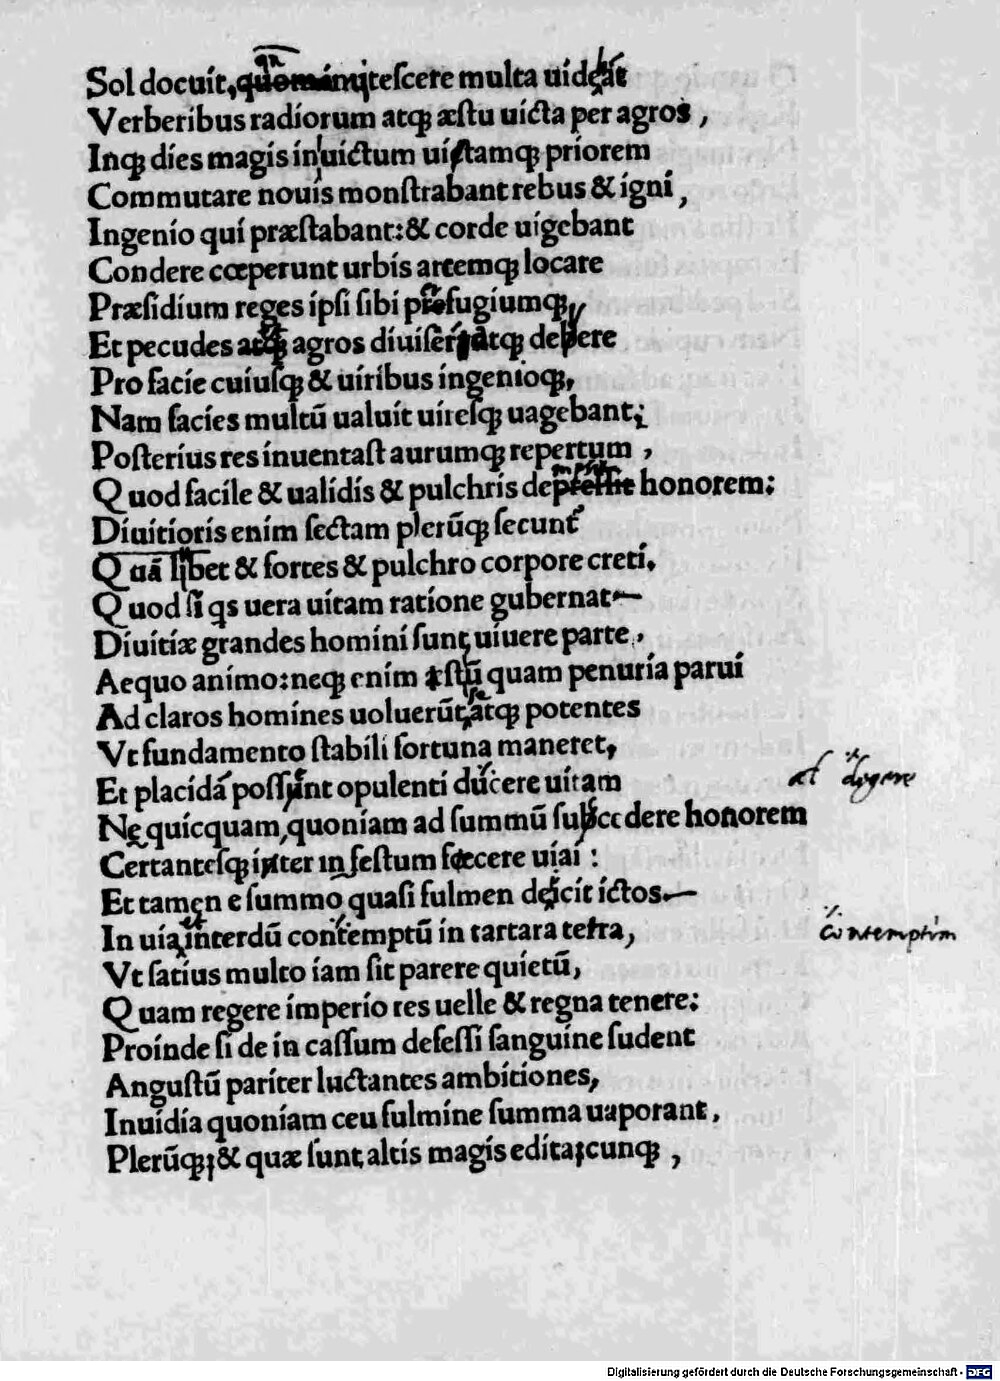 Sol docuit, quom mitescere multa uideāt
Verberibus radiorum atqꝫ æstu uicta per agros,
Inqꝫ dies magis inuictum uictamqꝫ priorem
Commutare nouis monstrabant rebus & igni,
Ingenio qui præstabant:& corde uigebant
Condere cœperunt urbis artemqꝫ locare
Præsidium reges ipsi sibi fugiumqꝫ,
Et pecudes atqꝫ agros diuiserūt atqꝫ depere
Pro facie cuiusqꝫ & uiribus ingenioqꝫ,
Nam facies multū ualuit uiresqꝫ uagebant;
Posterius res inuentast aurumqꝫ repertum,
Quod facile & ualidis & pulchris honorem:
Diuitioris enim sectam plerūqꝫ secunt
Quā libet & fortes & pulchro corpore creti.
Quod si qs uera uitam ratione gubernat
Diuitiæ grandes homini sunt uiuere parte,
Aequo animo:neqꝫ enim quam penuria parui
Ad claros homines uoluerūt se atqꝫ potentes
Vt fundamento stabili fortuna maneret,
Et placidā possent opulenti ducere uitam
al degere
Ne quicquam, quoniam ad summū succedere honorem
Certantesqꝫ inter infestum fecere uiai:
Et tamen e summo quasi fulmen deiicit ictos
In uia interdū contemptū in tartara tetra,
contemptim
Vt satius multo iam sit parere quietū,
Quam regere imperio res uelle & regna tenere:
Proinde si de in cassum defessi sanguine sudent
Angustū pariter luctantes ambitiones,
Inuidia quoniam ceu fulmine summa uaporant.
Plerūqꝫ;& quæ sunt altis magis edita;cunqꝫ,
Digitalisierung gefördert durch die Deutsche Forschungsgemeinschaft - DFG